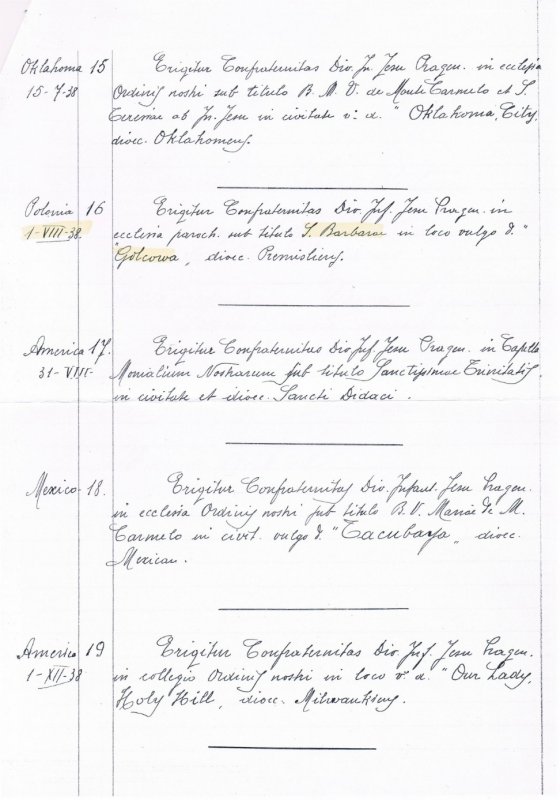 Oklahoma 15 Erigitur Confraternitas Div. In. Jesu Pragen. in ecclesia
15-7-38 Ordinis nostri sub titulo B. M. V. de Monte Carmelo et S.
Teresiae ab In. Jesu in civitate v. d. "Oklahoma City,
dioec. Oklahomens.
Polonia 16 Erigitur Confraternitas Div. Inf. Jesu Pragen. in
1-VIII-38. ecclesia paroch. sub titulo S. Barbarae in loco vulgo d. "
"Golcowa„ dioec. Premisliens.
America 17. Erigitur Confraternitas Div. Inf. Jesu Pragen. in Capella
31-VIII- Monialium Nostrarum sub titulo Sanctissimae Trinitatis,
in civitate et dioec. Sancti Didaci.
Mexico 18. Erigitur Confraternitas Div. Infant. Jesu Pragen.
in ecclesia Ordinis nostri sub titulo B. V. Mariae de M.
Carmelo in civit. vulgo d. "Tacubaya„ dioec.
Mexican.
America 19 Erigitur Confraternitas Div. Inf. Jesu Pragen.
1-XII-38 in collegio Ordinis nostri in loco v. d. "Our Lady,
Holy Hill, dioec. Milwaukiens.